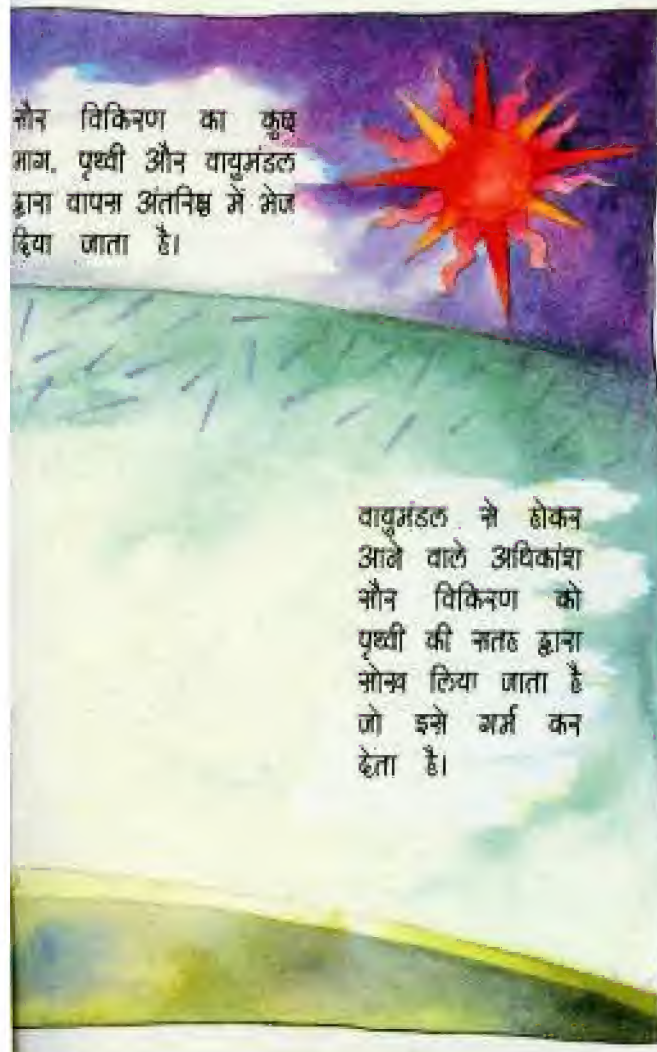 सौर विकिरण का कुछ
भाग, पृथ्वी और वायुमंडल
द्वारा वापस अंतरिक्ष में भेज
दिया जाता है।
वायुमंडल से होकर
आने वाले अधिकांश
सौर विकिरण को
पृथ्वी की सतह द्वारा
सोख लिया जाता है
जो इसे गर्म कर
देता है।